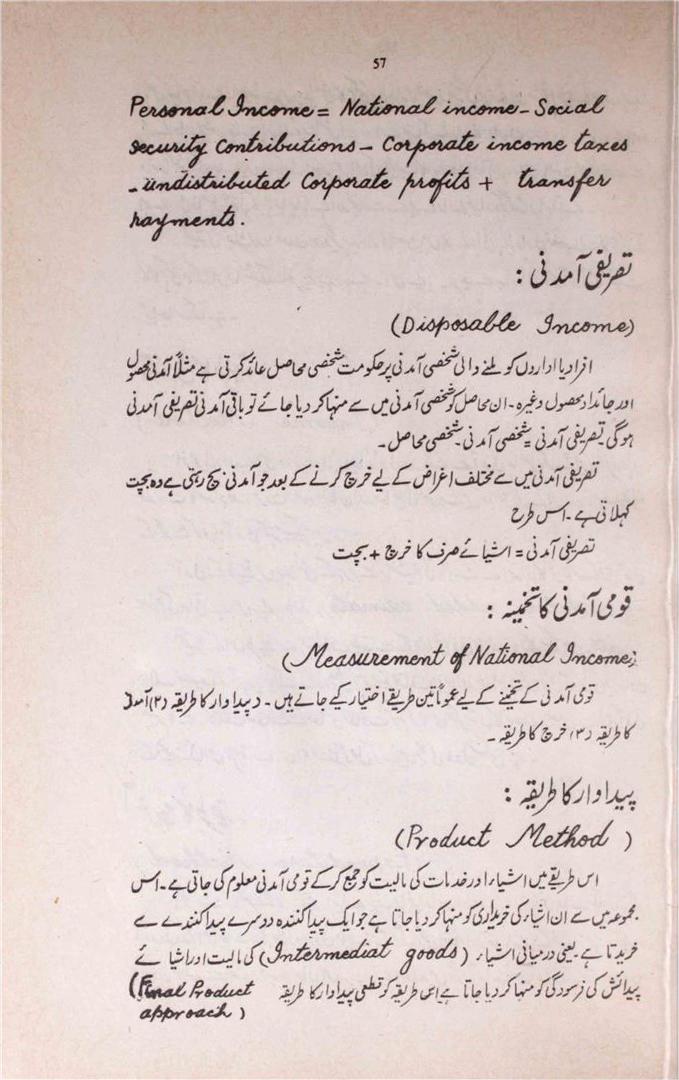 57
Personal Income = National income - Social
security Contributions - Corporate income taxes
- undistributed Corporate profits + transfer
payments.
تصریفی آمدنی :
(Disposable Income)
افراد یا اداروں کو ملنے والی شخصی آمدنی پر حکومت شخصی محاصل عائد کرتی ہے مثلاً آمدنی محصول
اور جائداد محصول وغیرہ۔ ان محاصل کو شخصی آمدنی میں سے منہا کر دیا جائے تو باقی آمدنی تصریفی آمدنی
ہوگی تصریفی آمدنی = شخصی آمدنی - شخصی محاصل۔
تصریفی آمدنی میں سے مختلف اغراض کے لیے خرچ کرنے کے بعد جو آمدنی بچ رہتی ہے وہ بچت
کہلاتی ہے۔ اس طرح
تصریفی آمدنی = اشیائے صرف کا خرچ + بچت
قومی آمدنی کا تخمینہ :
(Measurement of National Income)
قومی آمدنی کے تخمینے کے لیے عموماً تین طریقے اختیار کیے جاتے ہیں۔ د پیداوار کا طریقہ (۲) آمدنی
کا طریقہ (۳) خرچ کا طریقہ۔
پیداوار کا طریقہ :
(Product Method )
اس طریقے میں اشیاء اور خدمات کی مالیت کو جمع کرکے قومی آمدنی معلوم کی جاتی ہے۔ اس
مجموعہ میں سے ان اشیاء کی خریداری کو منہا کر دیا جاتا ہے جو ایک پیدا کنندہ دوسرے پیدا کنندے سے
خریدتا ہے یعنی درمیانی اشیاء (Intermediat goods) کی مالیت اور اشیائے
پیدائش کی فرسودگی کو منہا کر دیا جاتا ہے اس طریقہ کو قطعی پیداوار کا طریقہ (Final Product
approach)